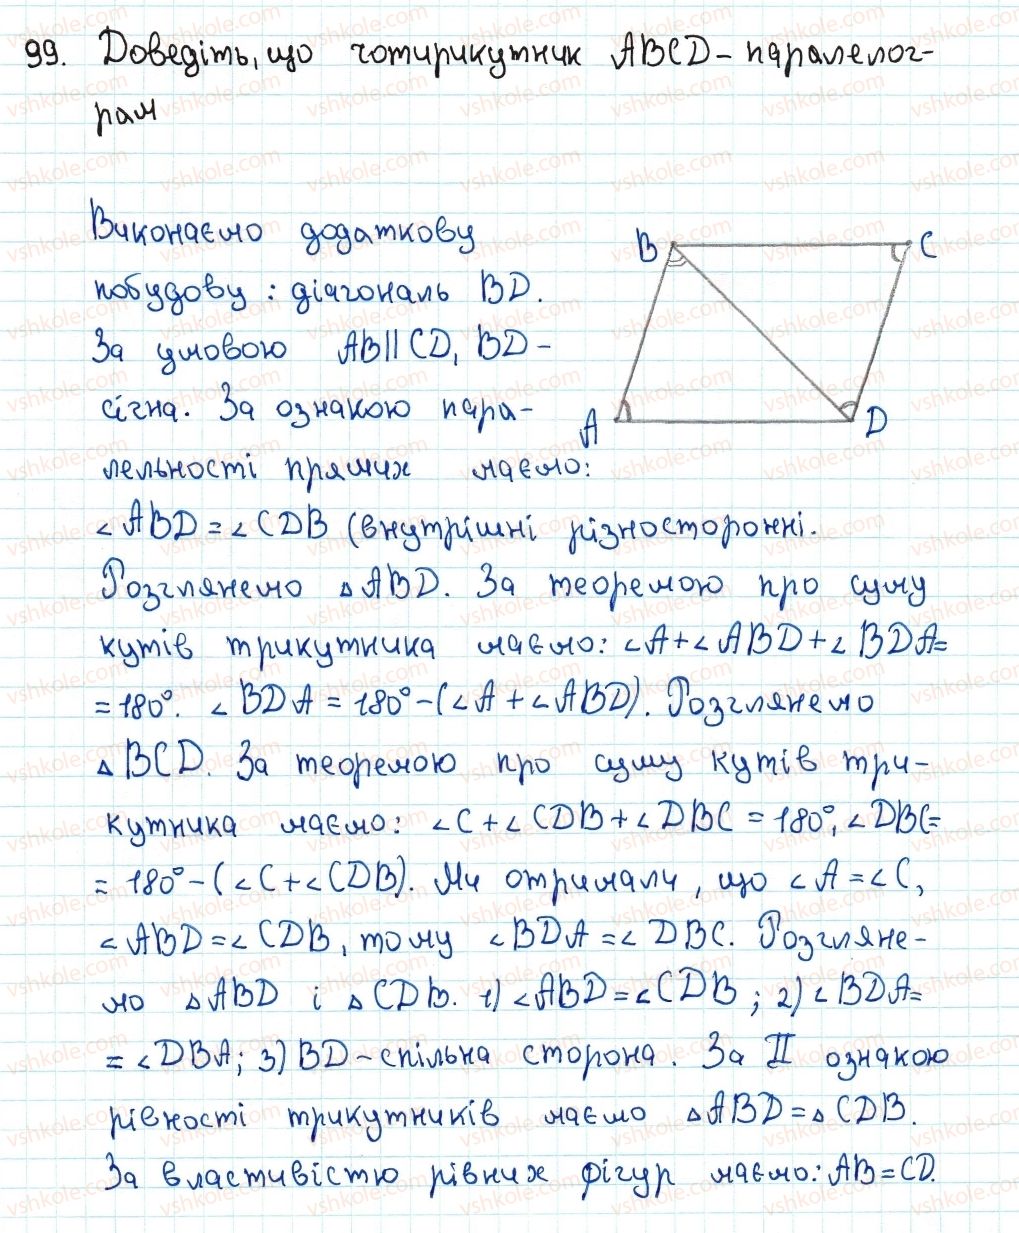 99. Доведіть, що чотирикутник ABCD - паралелог-
рам
Виконаємо додаткову
побудову: діагональ BD.
За умовою AB || CD, BD -
січна. За ознакою пара-
лельності прямих маємо:
∠ABD = ∠CDB (внутрішні різносторонні.
Розглянемо △ABD. За теоремою про суму
кутів трикутника маємо: ∠A + ∠ABD + ∠BDA =
= 180°. ∠BDA = 180° - (∠A + ∠ABD). Розглянемо
△BCD. За теоремою про суму кутів три-
кутника маємо: ∠C + ∠CDB + ∠DBC = 180°, ∠DBC =
= 180° - (∠C + ∠CDB). Ми отримали, що ∠A = ∠C,
∠ABD = ∠CDB, тому ∠BDA = ∠DBC. Розгляне-
мо △ABD і △CDB. 1) ∠ABD = ∠CDB; 2) ∠BDA =
= ∠DBA; 3) BD - спільна сторона. За II ознакою
рівності трикутників маємо △ABD = △CDB.
За властивістю рівних фігур маємо: AB = CD.
B
C
A
D
vshkole.com